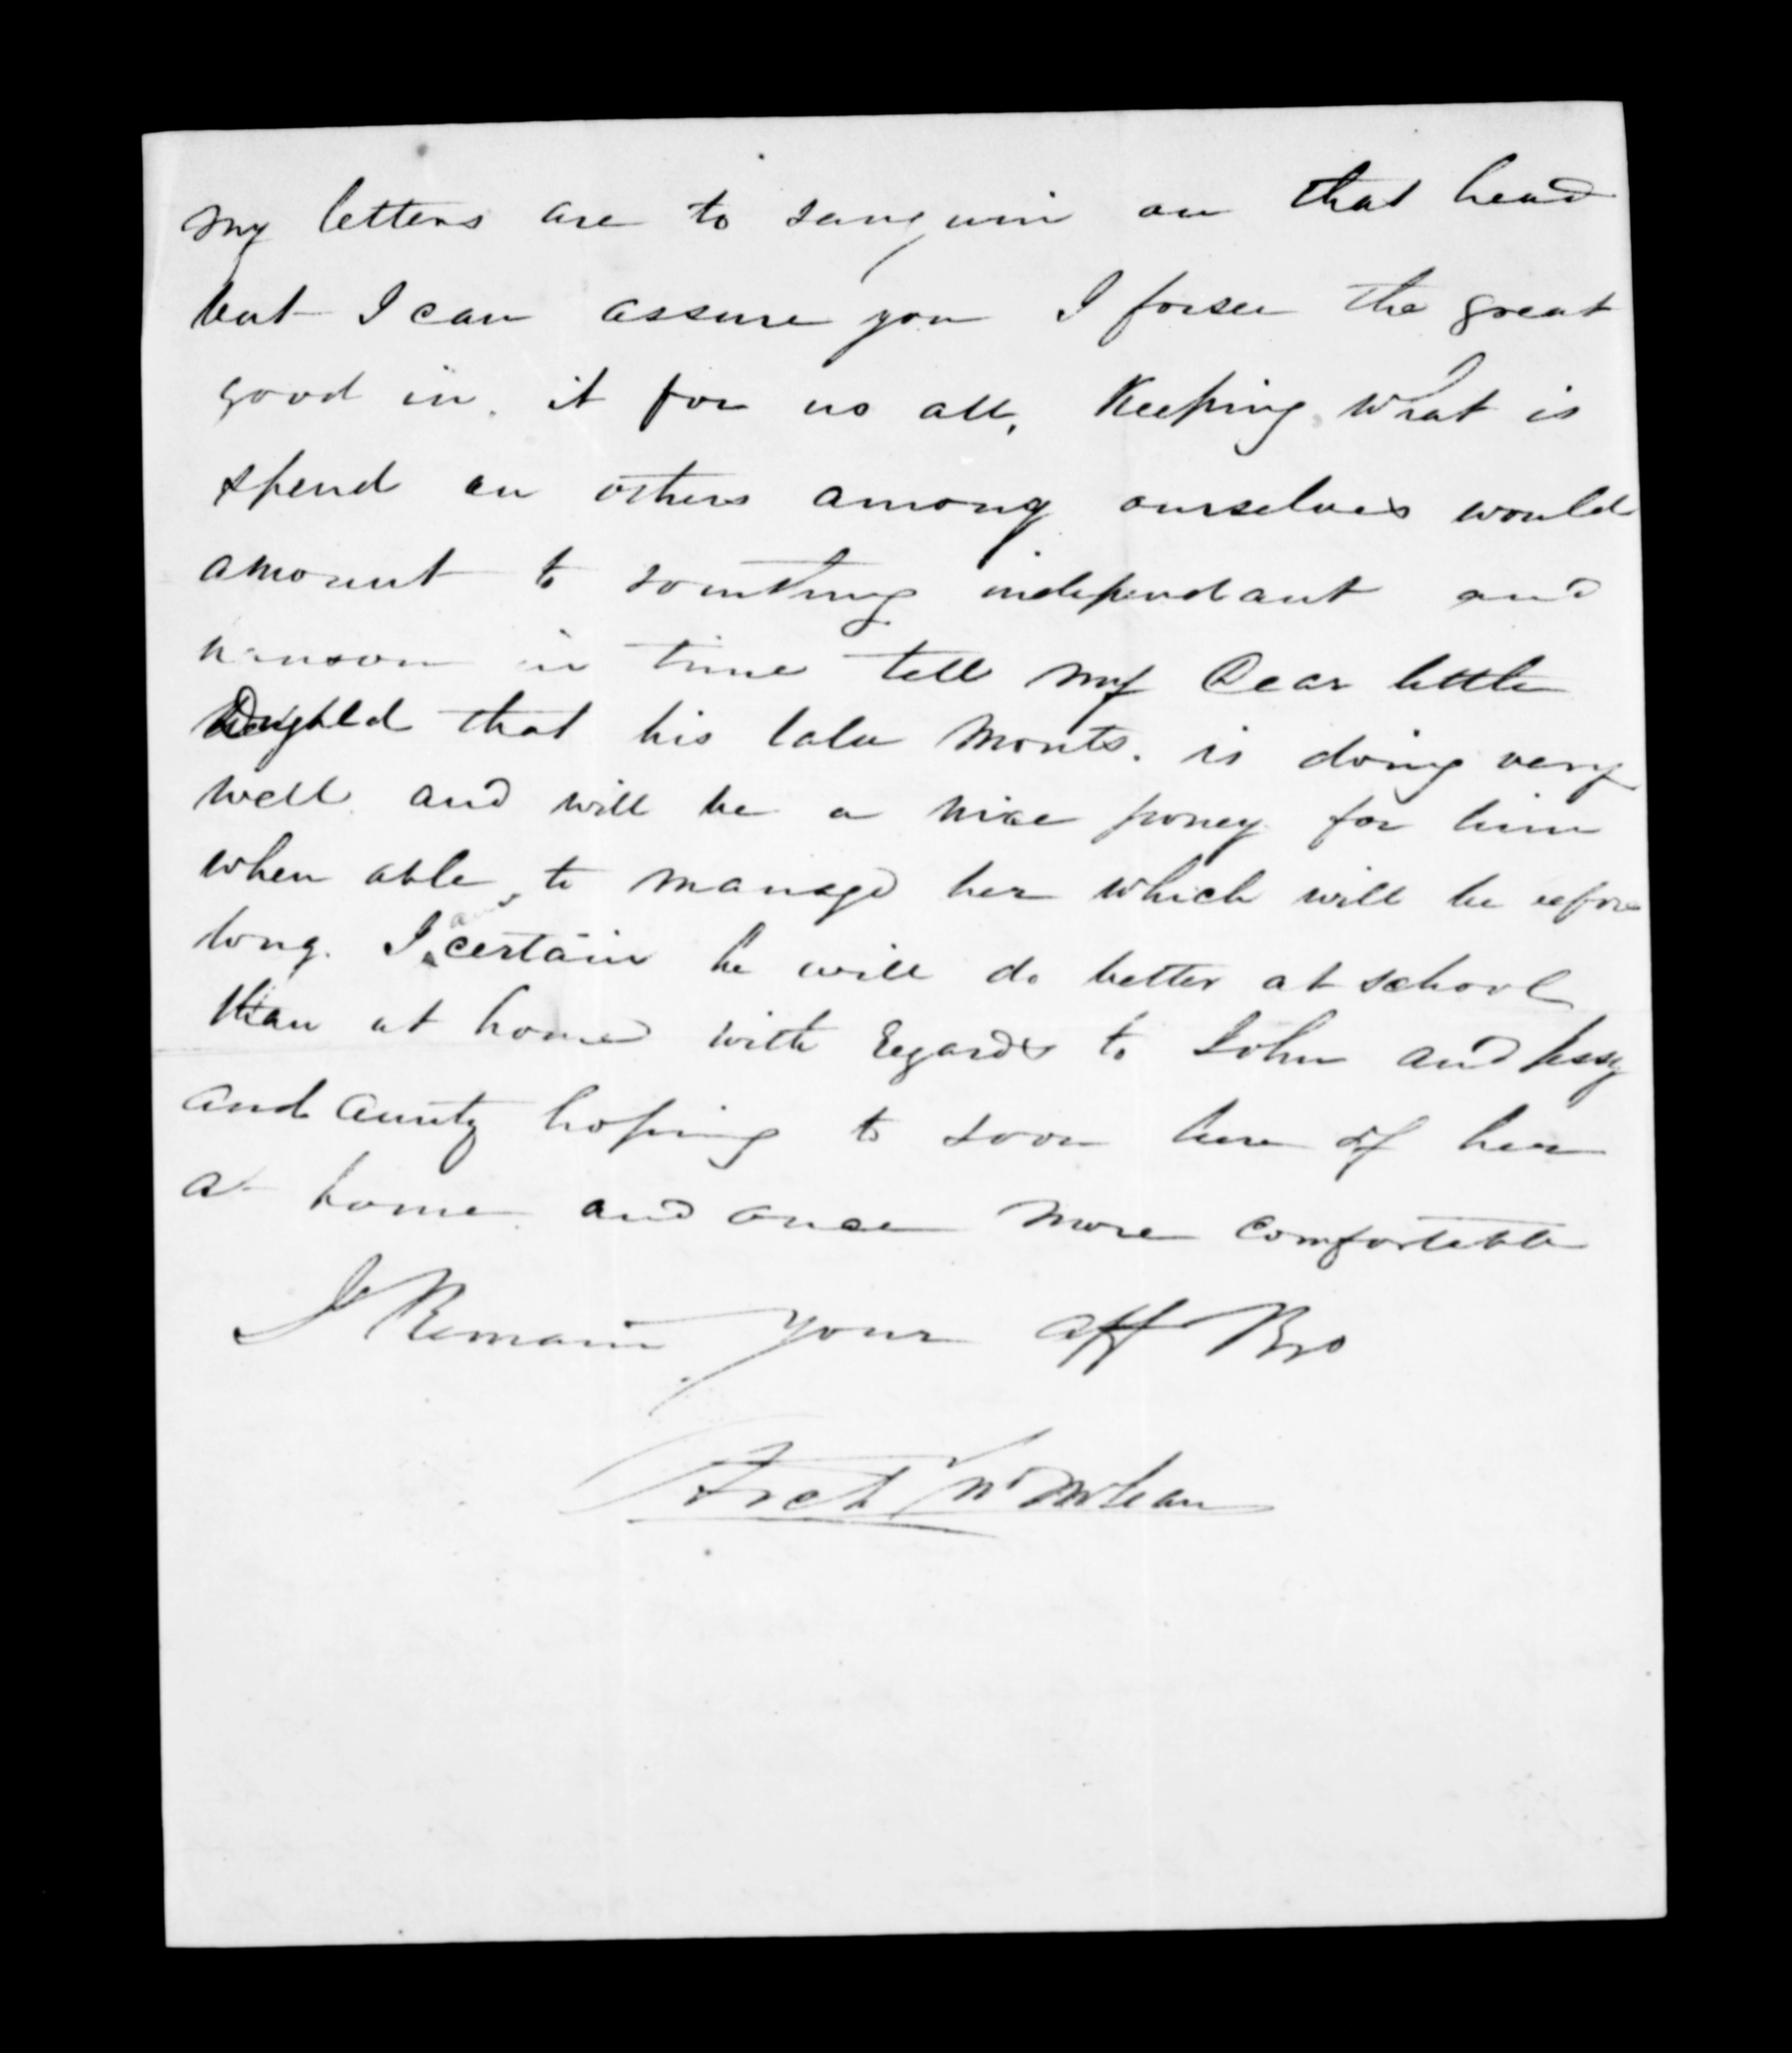 my letters are to sanguin on that head
but I can assure you I forsee the great
good in it for us all, Keeping what is
spend on others among ourselves would
amount to somthing independant and
hansom in time tell my Dear little
that his is doing very
well and will be a nice poney for him
when able to manage her which will be efore
long. I am certain he will do better at school
than at home with Regards to John and Jessy
and aunty hoping to soon here of her
at home and once more comfortable
I Remain your aff Bro
Arch McLean